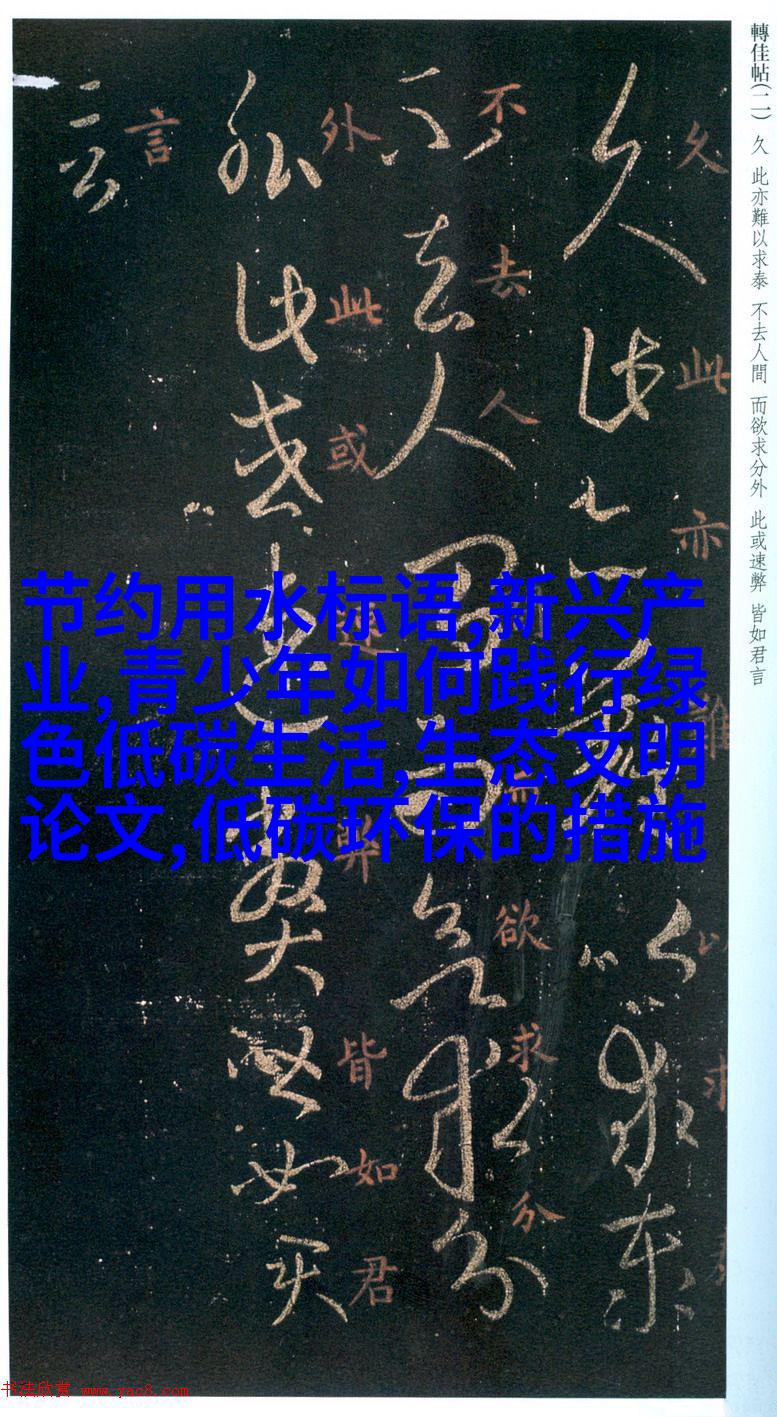 轉佳帖(二) 久 此亦難以求泰 不去人間 而欲求分外 此或速弊 皆如君言
久此亦難以求
不去人而欲求分
外此或速弊皆如君
言
节约用水标语,新兴产
业,青少年如何践行绿
色低碳生活,生态文明
论文,低碳环保的措施
书法欣赏 www.yac8.com